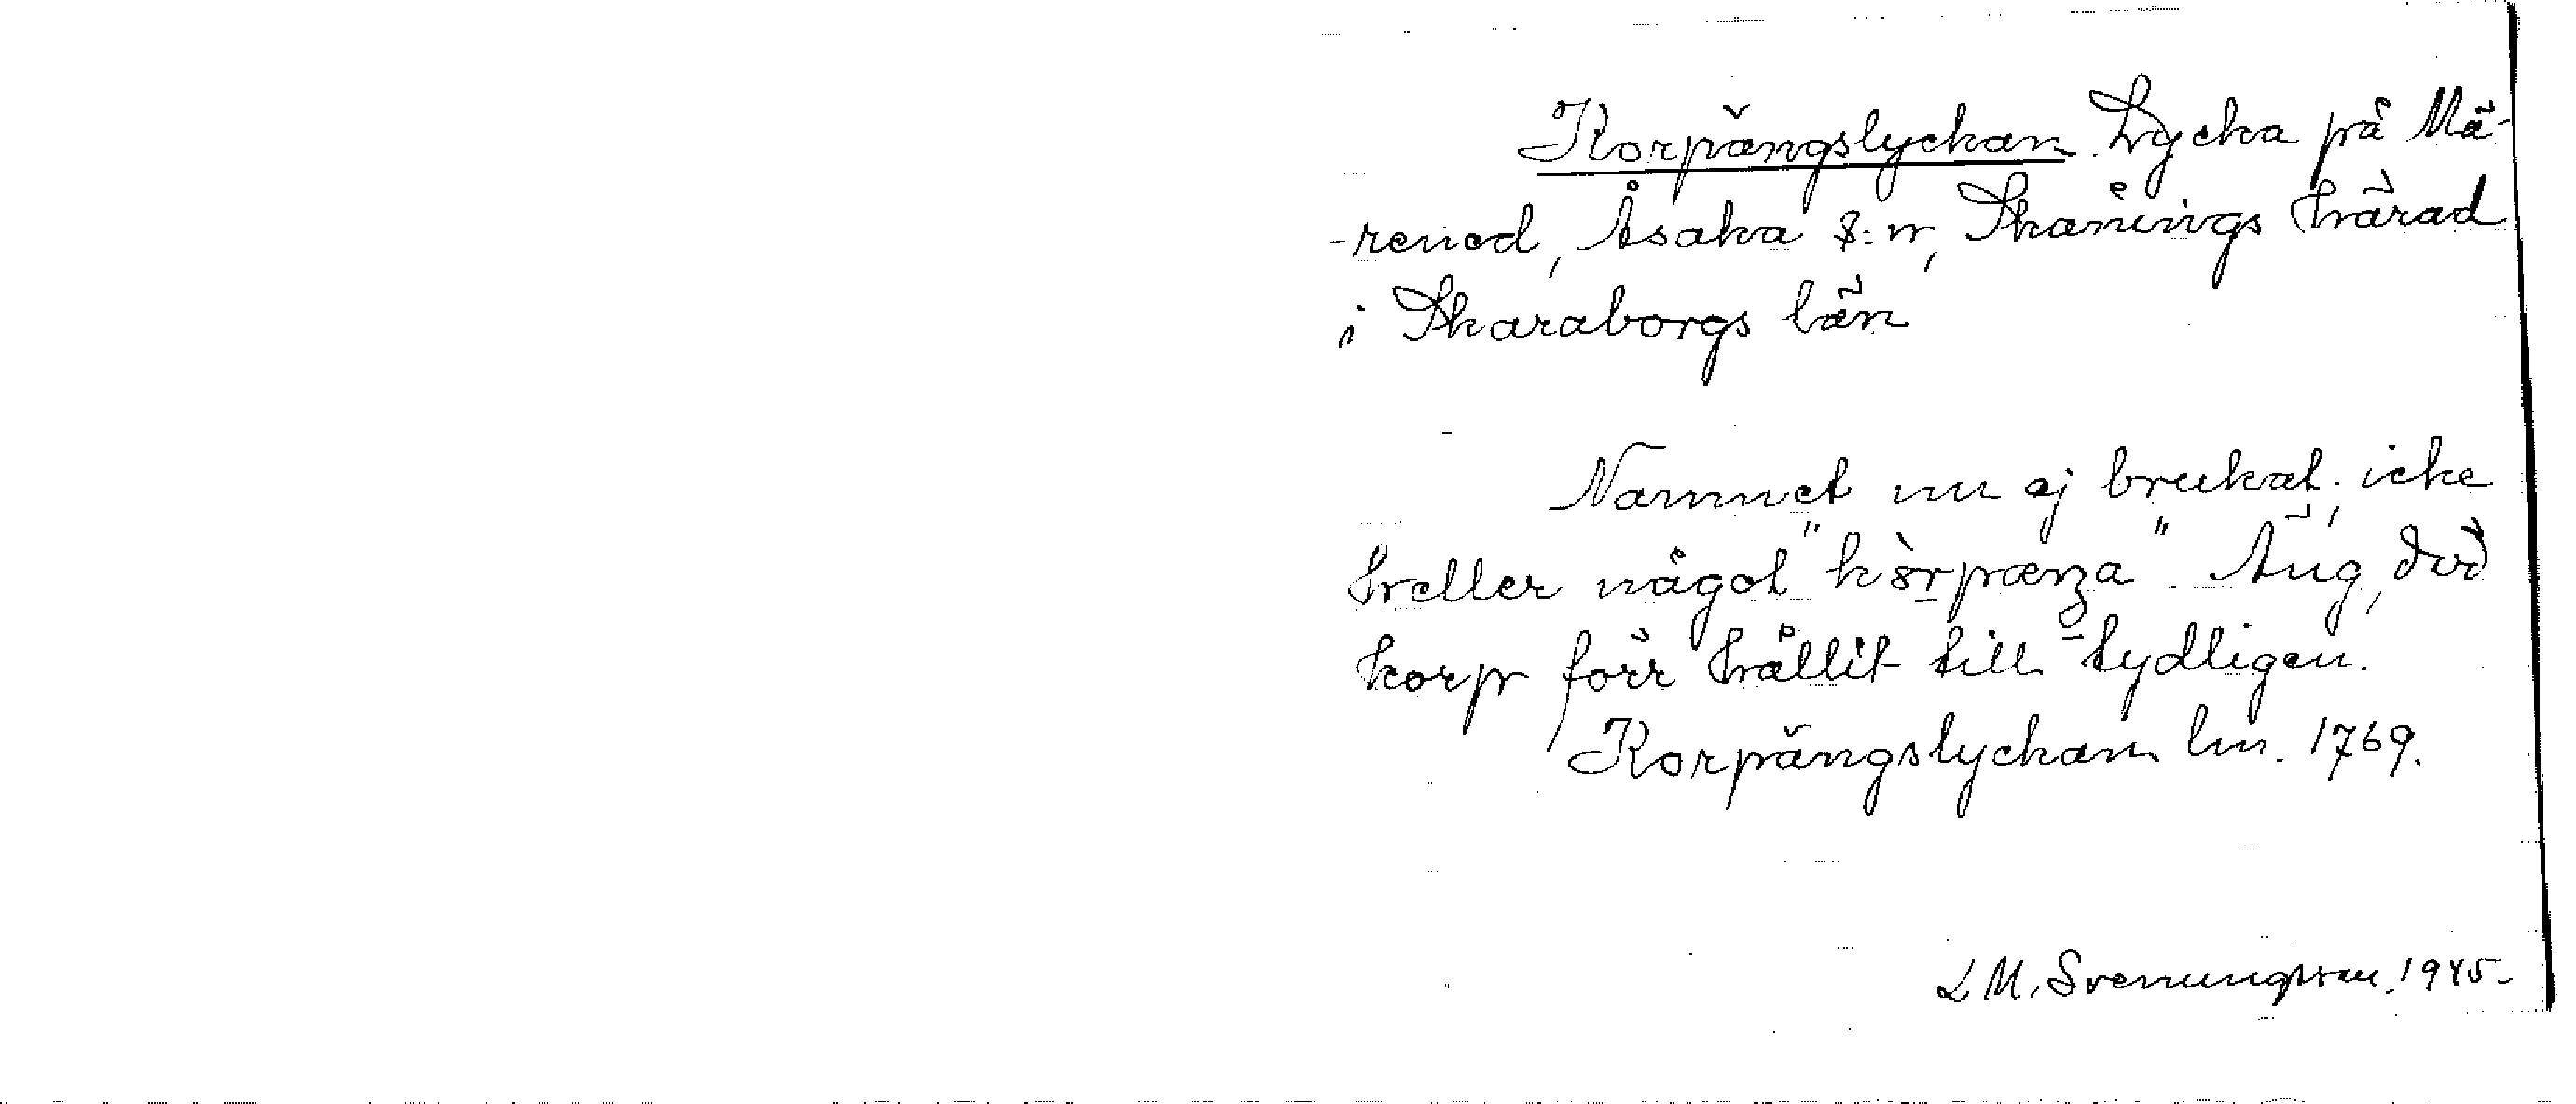 Korpängslyckan. Lycka på Mä-
-rened, Åsaka s:n, Skånings härad
i Skaraborgs län
Namnet nu ej brukat, icke
heller något "kòrpæŋa". Äng, där
korp förr hållit till tydligen.
Korpängslyckan lm. 1769.
L M. Svenungsson 1945-